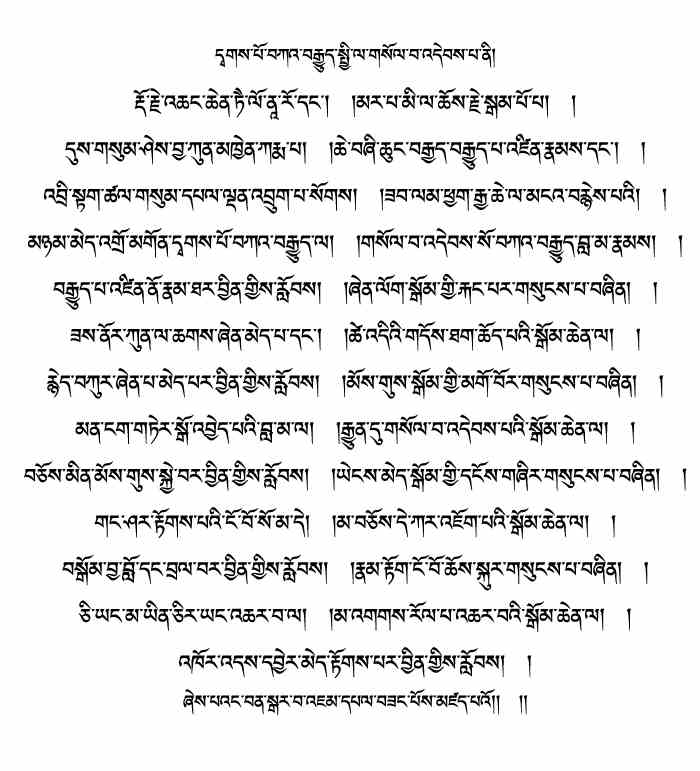 དྭགས་པོ་བཀའ་བརྒྱུད་སྤྱི་ལ་གསོལ་བ་འདེབས་པ་ནི།
རྡོ་རྗེ་འཆང་ཆེན་ཏཻ་ལོ་ནཱ་རོ་དང་། །མར་པ་མི་ལ་ཆོས་རྗེ་སྒམ་པོ་པ། །
དུས་གསུམ་ཤེས་བྱ་ཀུན་མཁྱེན་ཀརྨ་པ། །ཆེ་བཞི་ཆུང་བརྒྱད་བརྒྱུད་པ་འཛིན་རྣམས་དང་། །
འབྲི་སྟག་ཚལ་གསུམ་དཔལ་ལྡན་འབྲུག་པ་སོགས། །ཟབ་ལམ་ཕྱག་རྒྱ་ཆེ་ལ་མངའ་བརྙེས་པའི། །
མཉམ་མེད་འགྲོ་མགོན་དྭགས་པོ་བཀའ་བརྒྱུད་ལ། །གསོལ་བ་འདེབས་སོ་བཀའ་བརྒྱུད་བླ་མ་རྣམས། །
བརྒྱུད་པ་འཛིན་ནོ་རྣམ་ཐར་བྱིན་གྱིས་རློབས། །ཞེན་ལོག་སྒོམ་གྱི་རྐང་པར་གསུངས་པ་བཞིན། །
ཟས་ནོར་ཀུན་ལ་ཆགས་ཞེན་མེད་པ་དང་། །ཚེ་འདིའི་གདོས་ཐག་ཆོད་པའི་སྒོམ་ཆེན་ལ། །
རྙེད་བཀུར་ཞེན་པ་མེད་པར་བྱིན་གྱིས་རློབས། །མོས་གུས་སྒོམ་གྱི་མགོ་བོར་གསུངས་པ་བཞིན། །
མན་ངག་གཏེར་སྒོ་འབྱེད་པའི་བླ་མ་ལ། །རྒྱུན་དུ་གསོལ་བ་འདེབས་པའི་སྒོམ་ཆེན་ལ། །
བཅོས་མིན་མོས་གུས་སྐྱེ་བར་བྱིན་གྱིས་རློབས། །ཡེངས་མེད་སྒོམ་གྱི་དངོས་གཞིར་གསུངས་པ་བཞིན། །
གང་ཤར་རྟོགས་པའི་ངོ་བོ་སོ་མ་དེ། །མ་བཅོས་དེ་ཀར་འཇོག་པའི་སྒོམ་ཆེན་ལ། །
བསྒོམ་བྱ་བློ་དང་བྲལ་བར་བྱིན་གྱིས་རློབས། །རྣམ་རྟོག་ངོ་བོ་ཆོས་སྐུར་གསུངས་པ་བཞིན། །
ཅི་ཡང་མ་ཡིན་ཅིར་ཡང་འཆར་བ་ལ། །མ་འགགས་རོལ་པ་འཆར་བའི་སྒོམ་ཆེན་ལ། །
འཁོར་འདས་དབྱེར་མེད་རྟོགས་པར་བྱིན་གྱིས་རློབས། །
ཞེས་པའང་བན་སྒར་བ་འཇམ་དཔལ་བཟང་པོས་མཛད་པའོ།། །།